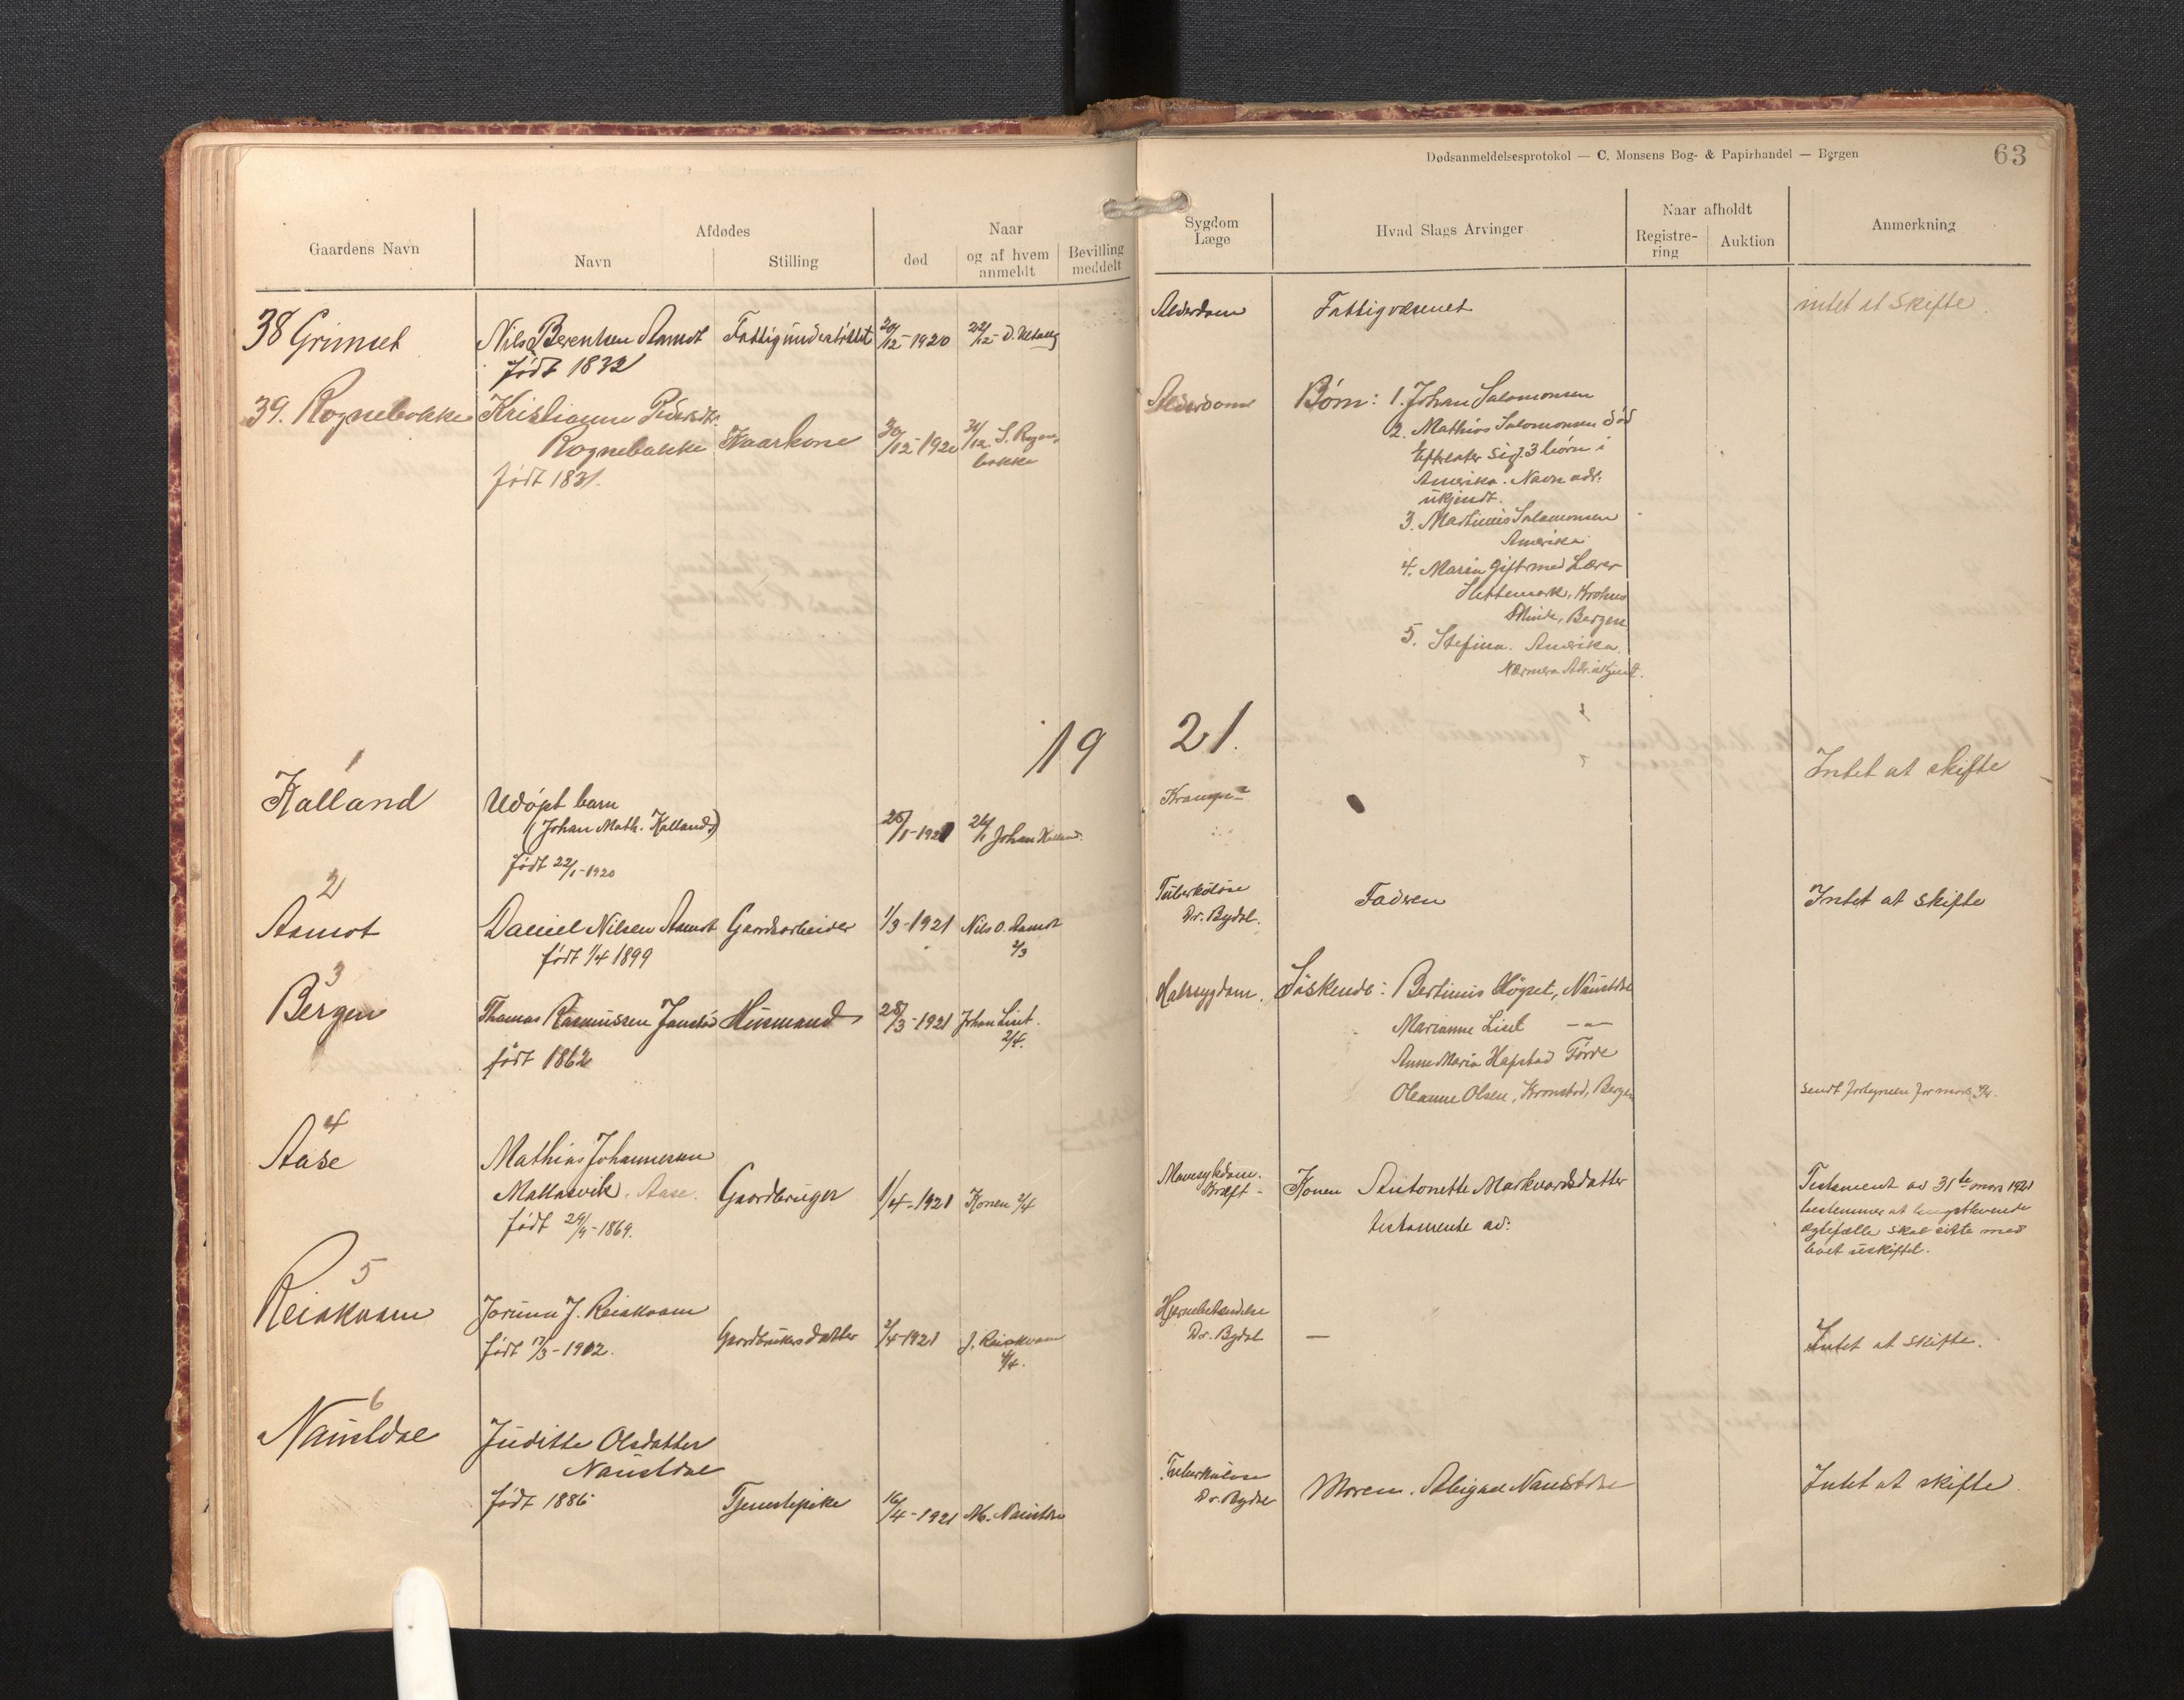 Dødsanmeldelsesprotokol — C. Monsens Bog- & Papirhandel — Bergen
63
Gaardens Navn
Afdødes
Navn
Stilling
Naar
død
og af hvem
anmeldt
Bevilling
meddelt
Sygdom
Læge
Hvad Slags Arvinger
Naar afholdt
Registre-
ring
Auktion
Anmerkning
38 Grimset
Nils Berentsen Aamot
født 1832
Fattigunderstøttet
20/12-1920
22/12-
Alderdom
Fattigvæsenet
intet at skifte
39. Rognebakke
Kristianne Pedersdtr.
Rognebakke
født 1831.
Kaarkone
30/12-1920
31/12. S. Rogne-
bakke
Alderdom
Børn: 1. Johan Salomonsen
2. Mathias Salomonsen død
Efterlater sig 3 børn i
Amerika. Navn adr.
ukjendt.
3. Martinus Salomonsen
Amerika
4. Maria gift med Lærer
Slettemark, Krohns
Minde, Bergen
5. Stefina. Amerika.
Nærmere Adr. ukjendt.
1921.
1
Kalland
Udøpt barn
(Johan Math. Kallands)
født 22/1-1920
25/1-1921
26/1 Johan Kalland.
Krampe
Intet at skifte
2
Aamot
Daniel Nilsen Aamot
født 1/4 1899
Gaardsarbeider
1/3-1921
Nils O. Aamot
2/3
Tuberkuløse
Dr. Bydal.
Fadren
Intet at skifte
3
Bergen
Thomas Rasmussen
født 1862
Husmand
28/3-1921
Johan Liset.
2/4.
Halssygdom.
Søskende: Bertinus Høgset, Naustdal
Marianne Liset —"—
Anne Maria Hafstad Førde
Oleanne Olsen, Kronstad, Bergen
sendt
4
Aase
Mathias Johannesen
Mallasvik. Aase.
født 29/9-1869.
Gaardbruger
1/4-1921
Konen 2/4
Mavesykdom.
Kræft-
Konen Antonette Markvardsdatter
testamente av:
Testament av 31te mars 1921
bestemmer at længstlevende
egtefælle skal sitte med
boet uskiftet.
5
Reiakvam
Jorunn J. Reiakvam
født 17/3-1902.
Gaardbrukersdatter
2/4-1921
J. Reiakvam
4/4.
Hjernebetændelse
Dr. Bydal
—
Intet at skifte.
6
Naustdal
Juditte Olsdatter
Naustdal
født 1886
Tjenestepike
16/4-1921
M. Naustdal
Tuberkuløse
Dr. Bydal
Moren. Abigael Naustdal
Intet at skifte